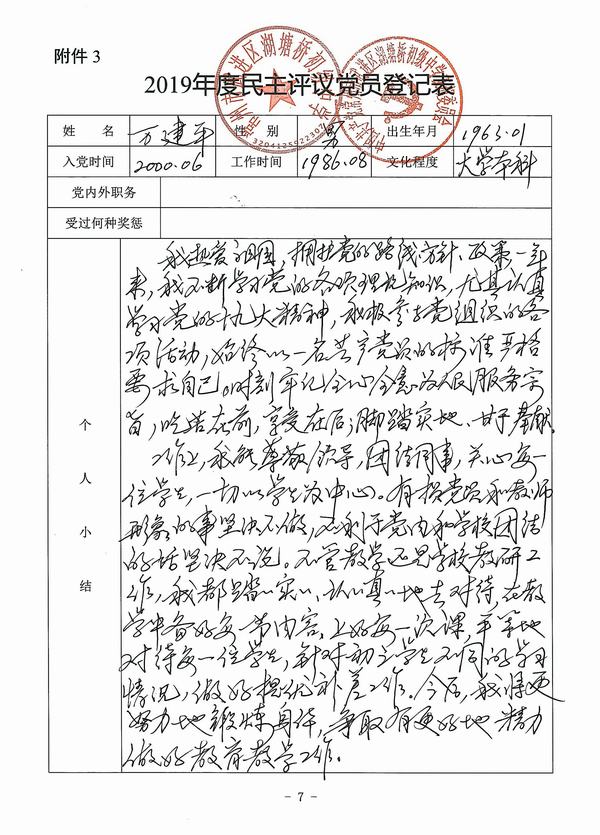 附件 3
2019年度民主评议党员登记表
姓 名 万建平 性 别 男 出生年月 1963.01
入党时间 2000.06 工作时间 1986.08 文化程度 大学本科
党内外职务
受过何种奖惩
个人小结
我热爱祖国，拥护党的路线、方针、政策。一年
来，我不断学习党的各项理论知识，尤其认真
学习党的十九大精神，积极参与党组织的各
项活动，始终以一名共产党员的标准严格
要求自己。时刻牢记全心全意为人民服务宗
旨，吃苦在前，享受在后；脚踏实地、甘于奉献。
工作上，我能尊敬领导，团结同事，关心每一
位学生，一切以学生为中心。有损党员和教师
形象的事坚决不做，不利于党内和学校团结
的话坚决不说。不管教学还是学校教研工
作，我都踏踏实实、认认真真地去对待，在教
学中备好每一节内容，上好每一次课，平等地
对待每一位学生，针对初三学生不同的学习
情况，做好提优补差工作。今后，我将更
努力地锻炼身体，争取有更好地精力
做好教育教学工作。
- 7 -